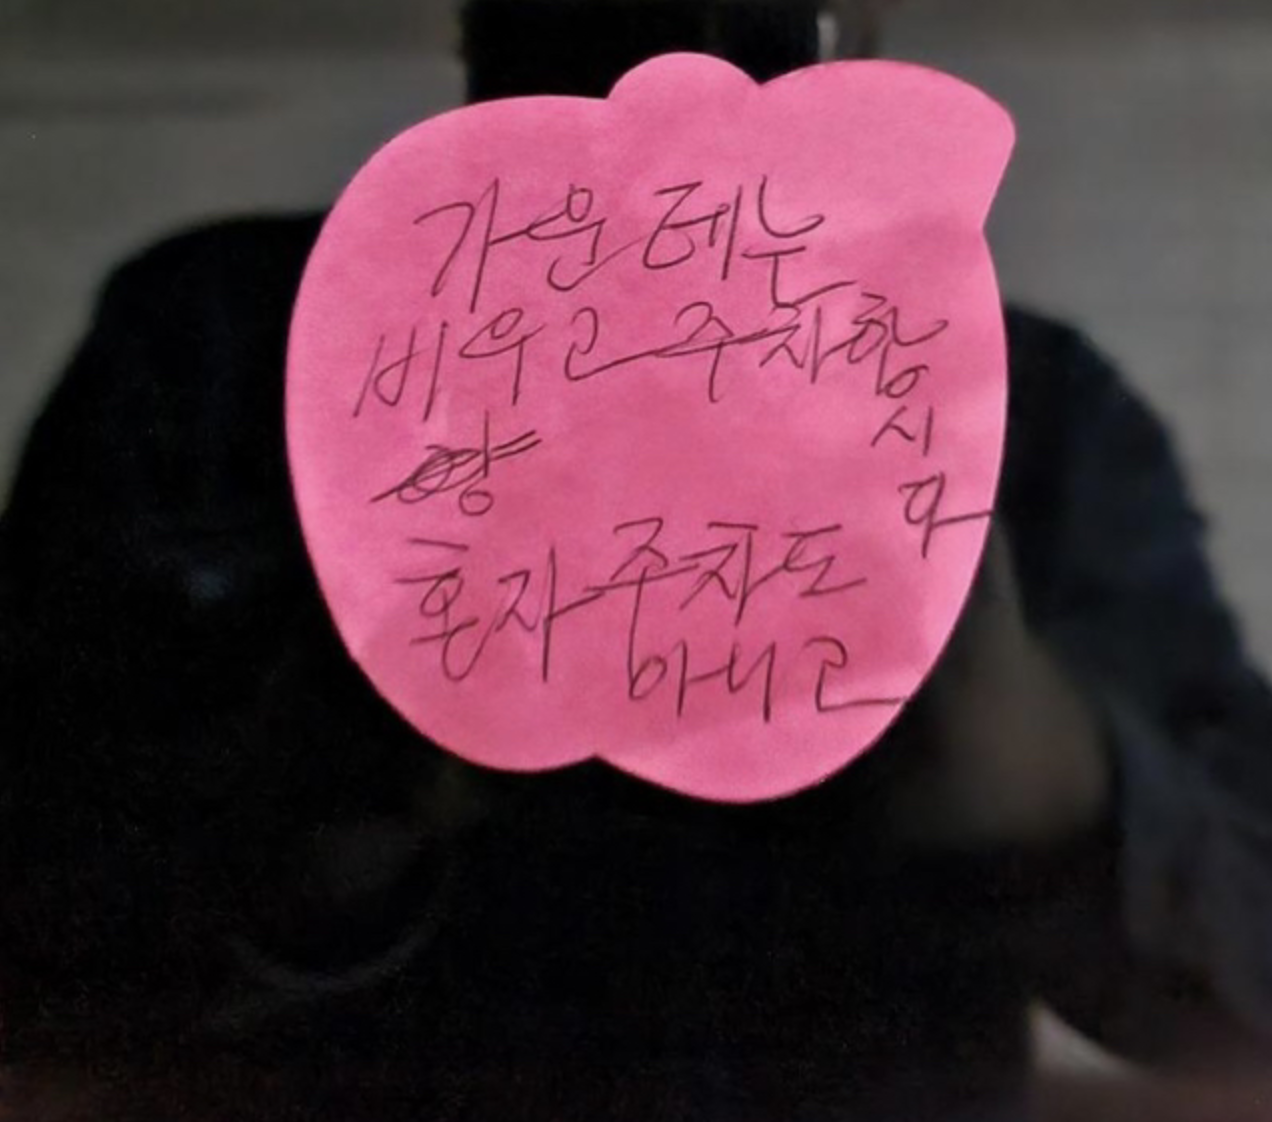 가운테는
비우고 주차합
시
다
혼자 주차도
아니고